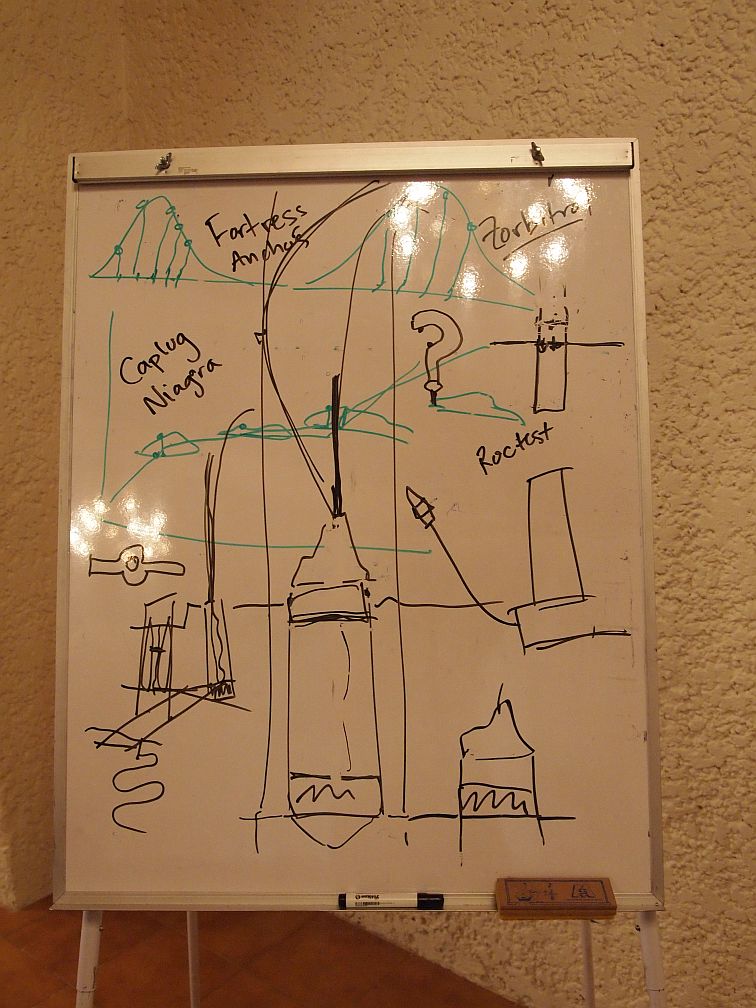 Fortress
Anchors
Zorbitrol
Caplug
Niagra
Roctest